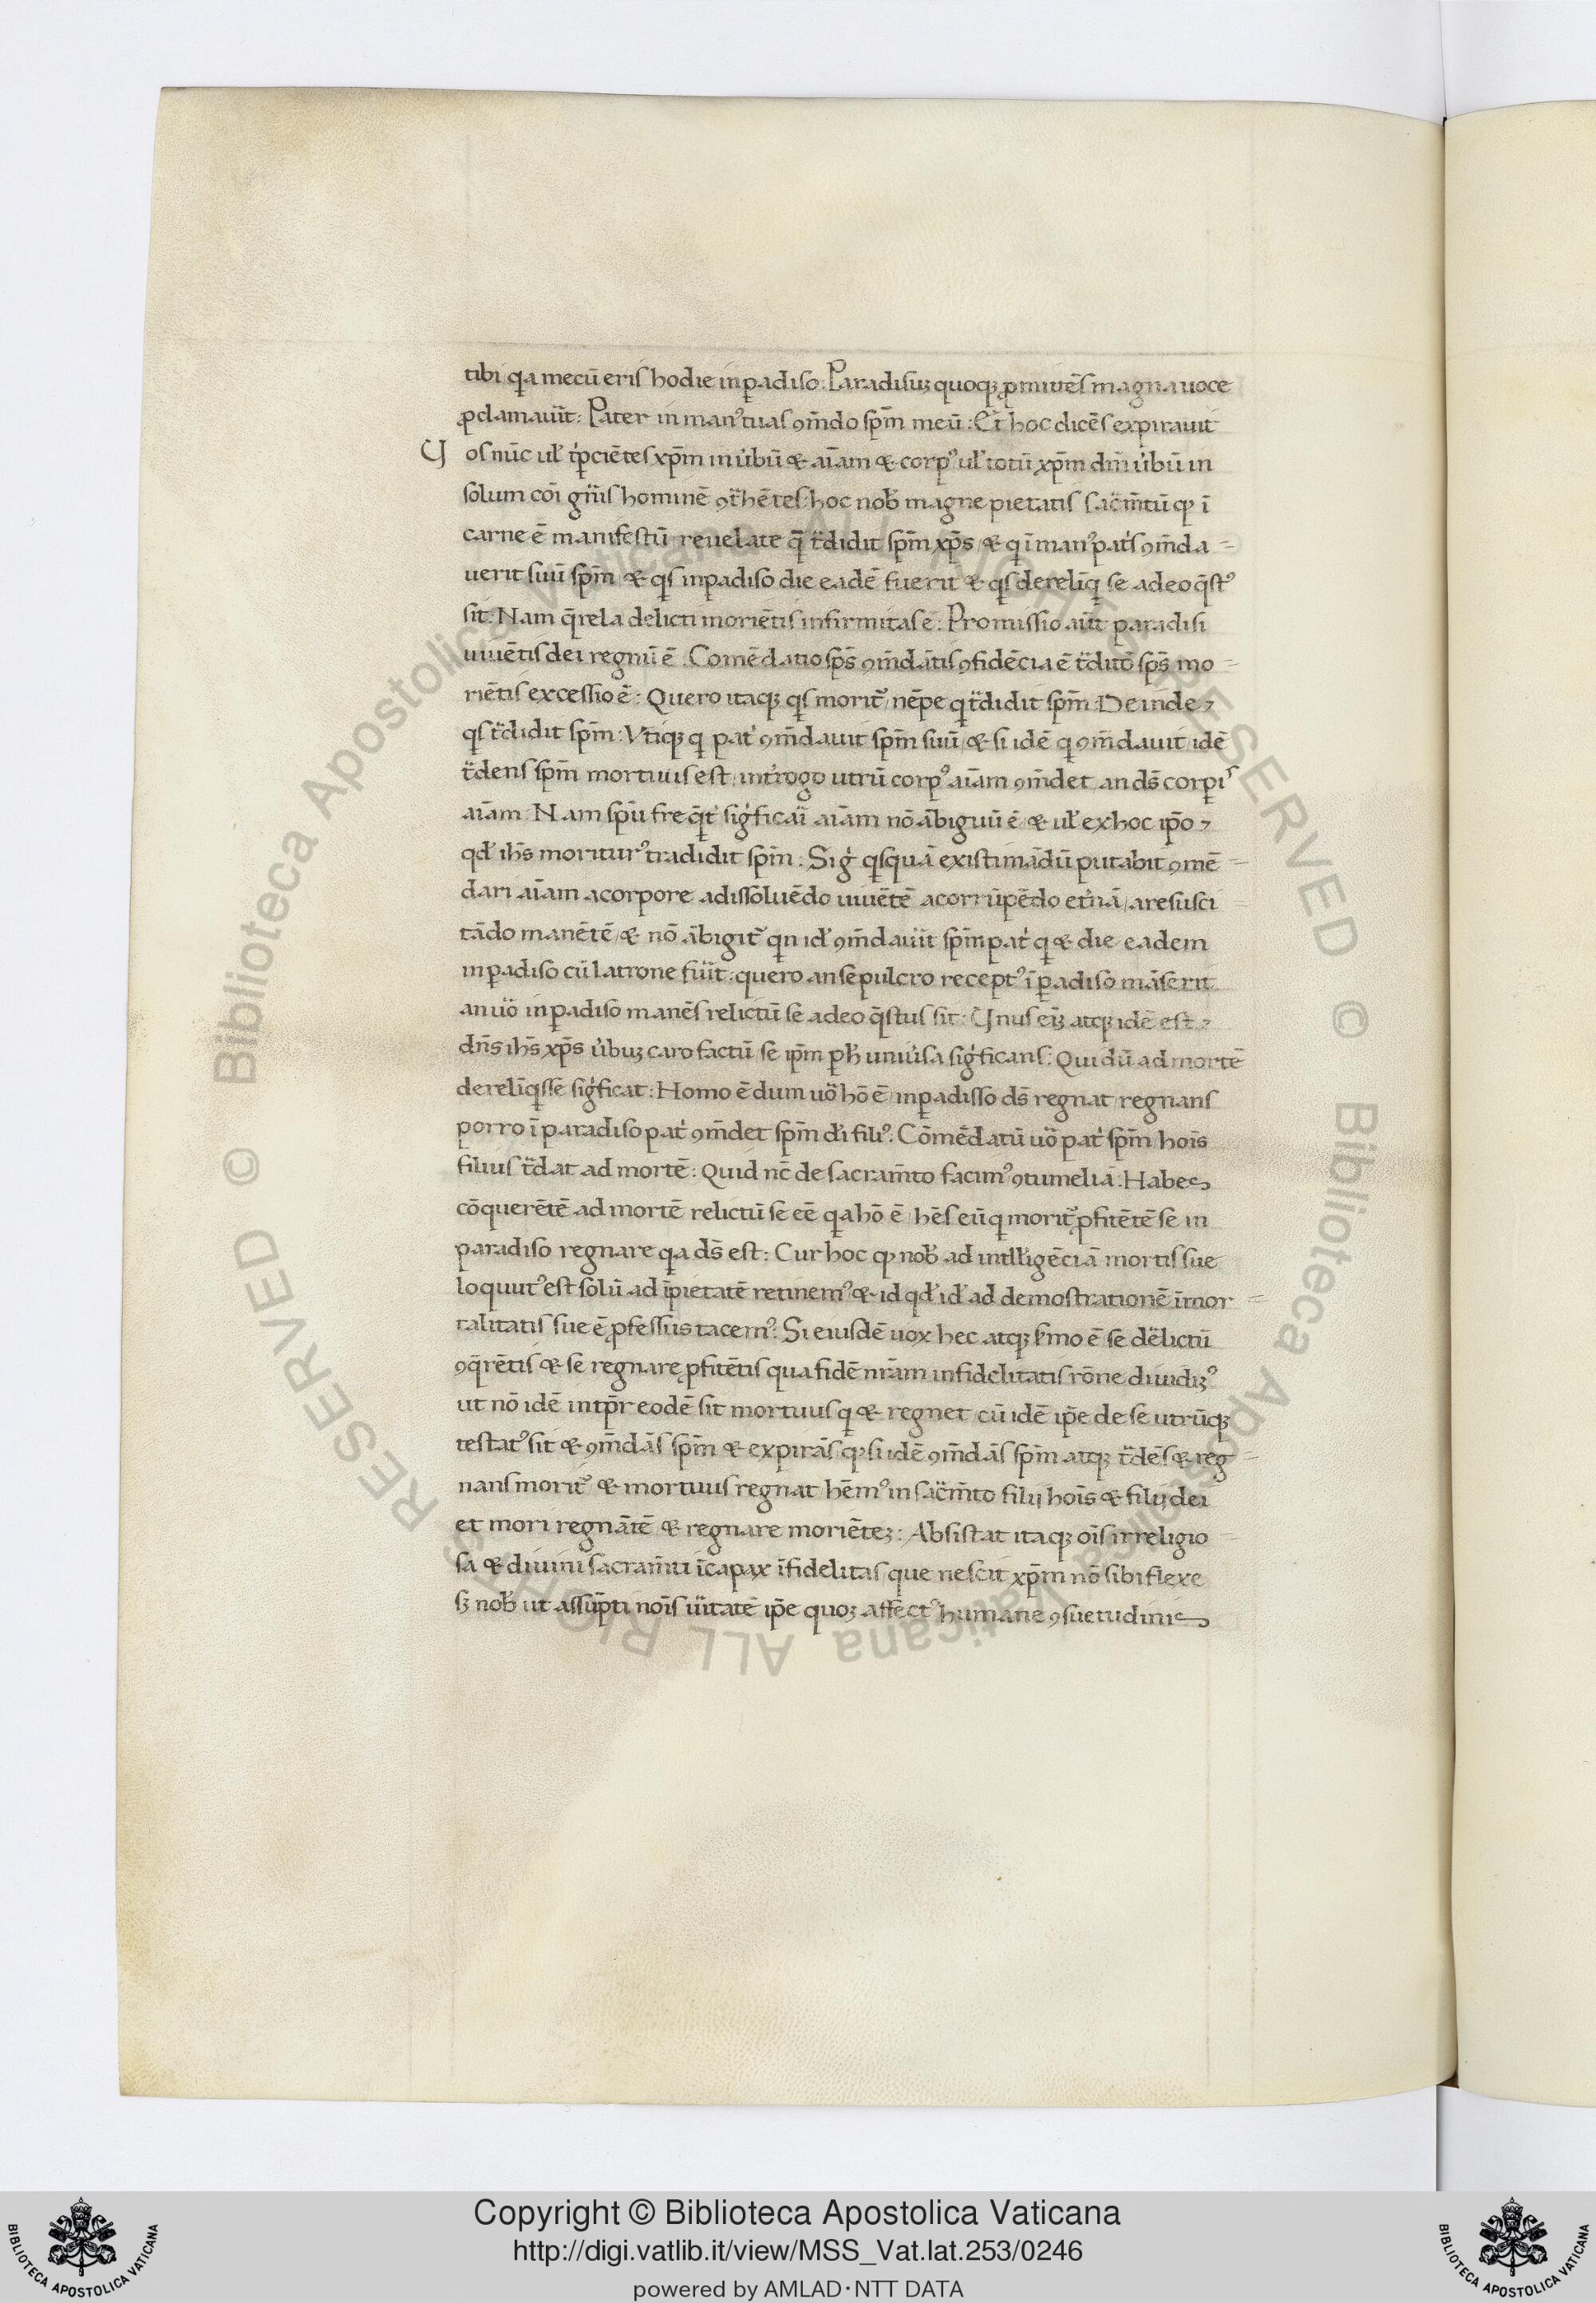 tibi qa mecū eris hodie in ꝑadiso: Paradisuꝫ quoqꝫ ꝓmittēs magna uoce
ꝓclamauit: Pater in manꝰ tuas ꝯm̄do sp̄m meū: Et hoc dicēs expirauit
Uos nūc ul' xp̄m in ubū & aīam & corpꝰ ul' totū xp̄m dm̄ ubū in
solum hominē hoc nob̄ magne pietatis sacm̄tū qꝫ ī
carne ē manifestū reuelate q̄ t̄didit sp̄m xp̄s & q ī manꝰ pat's ꝯm̄da
uerit suū sp̄m & qs in ꝑadiso die eadē fuerit & qs se a deo q̄stꝰ
sit: Nam q̄rela delicti moriētis infirmitas ē: Promissio aūt paradisi
uiuētis dei regnū ē: Comēdatio sp̄s ꝯm̄dātis ꝯfidēcia ē t̄ditō sp̄s mo
riētis excessio ē: Quero itaqꝫ qs morit̄ nēpe q t̄didit sp̄m: Deinde
qs t̄didit sp̄m: Vtiqꝫ q pat' ꝯm̄dauit sp̄m suū & si idē q ꝯm̄dauit idē
t̄dens sp̄m mortuus est int'rogo utrū corpꝰ aīam ꝯm̄det an ds̄ corpis
aīam: Nam sp̄u freq̄t' aīam nō ābiguū ē & ul' ex hoc ip̄o
qd' ih̄s moriturꝰ tradidit sp̄m: qsquā existimādū putabit ꝯmē
dari aīam a corpore a dissoluēdo uiuētē a corrūpēdo et'nā a resusci
tādo manētē & nō ābigit̄ qn id' ꝯm̄dauit sp̄m pat' q & die eadem
in ꝑadiso cū latrone fuit: quero an sepulcro receptꝰ ī ꝑadiso māserit
an uo in ꝑadiso manēs relictū se a deo q̄stus sit: Unus atqꝫ idē est
dn̄s ih̄s xp̄s caro factū se ip̄m ꝑ uniusa sig'ficans: Qui dū ad mortē
dereliq̄sse sig'ficat: Homo ē dum uo hō ē in ꝑadisso ds̄ regnat regnans
porro ī paradiso pat' ꝯm̄det sp̄m d'i filiꝰ: Cōmēdatū uo pat' sp̄m hoīs
filius t̄dat ad mortē: Quid nc̄ de sacram̄to facimꝰ ꝯtumeliā: Habes
cōquerētē ad mortē relictū se eē qa hō ē hēs eū q morit̄ ꝓfitētē se in
paradiso regnare qa ds̄ est: Cur hoc qꝫ nob̄ ad intlligēciā mortis sue
loquutꝰ est solū ad īpietatē retinemꝰ & id qd' id' ad demostrationē īmor
talitatis sue ē ꝓfessus tacemꝰ: Si eiusdē uox hec atqꝫ s'mo ē se delictū
ꝯq̄rētis & se regnare ꝓfitētis qua fidē nr̄am infidelitatis rōne diuidiꝫꝰ
ut nō idē in tp̄r eodē sit mortuus q & regnet cū idē ip̄e de se utrūqꝫ
testatꝰ sit & ꝯm̄dās sp̄m & expirās qꝫ si idē ꝯm̄dās sp̄m atqꝫ t̄dēs & reg
nans morit̄ & mortuus regnat hēmꝰ in sacm̄to filij hoīs & filij dei
et mori regnātē & regnare moriēteꝫ: Absistat itaqꝫ oīs irreligio
sa & diuini sacram̄ti īcapax īfidelitas que nescit xp̄m nō sibi flexe
sꝫ nob̄ ut assūpti noīs uitatē ip̄e quoꝫ affectꝰ humane ꝯsuetudinis
Copyright © Biblioteca Apostolica Vaticana
http://digi.vatlib.it/view/MSS_Vat.lat.253/0246
powered by AMLAD·NTT DATA